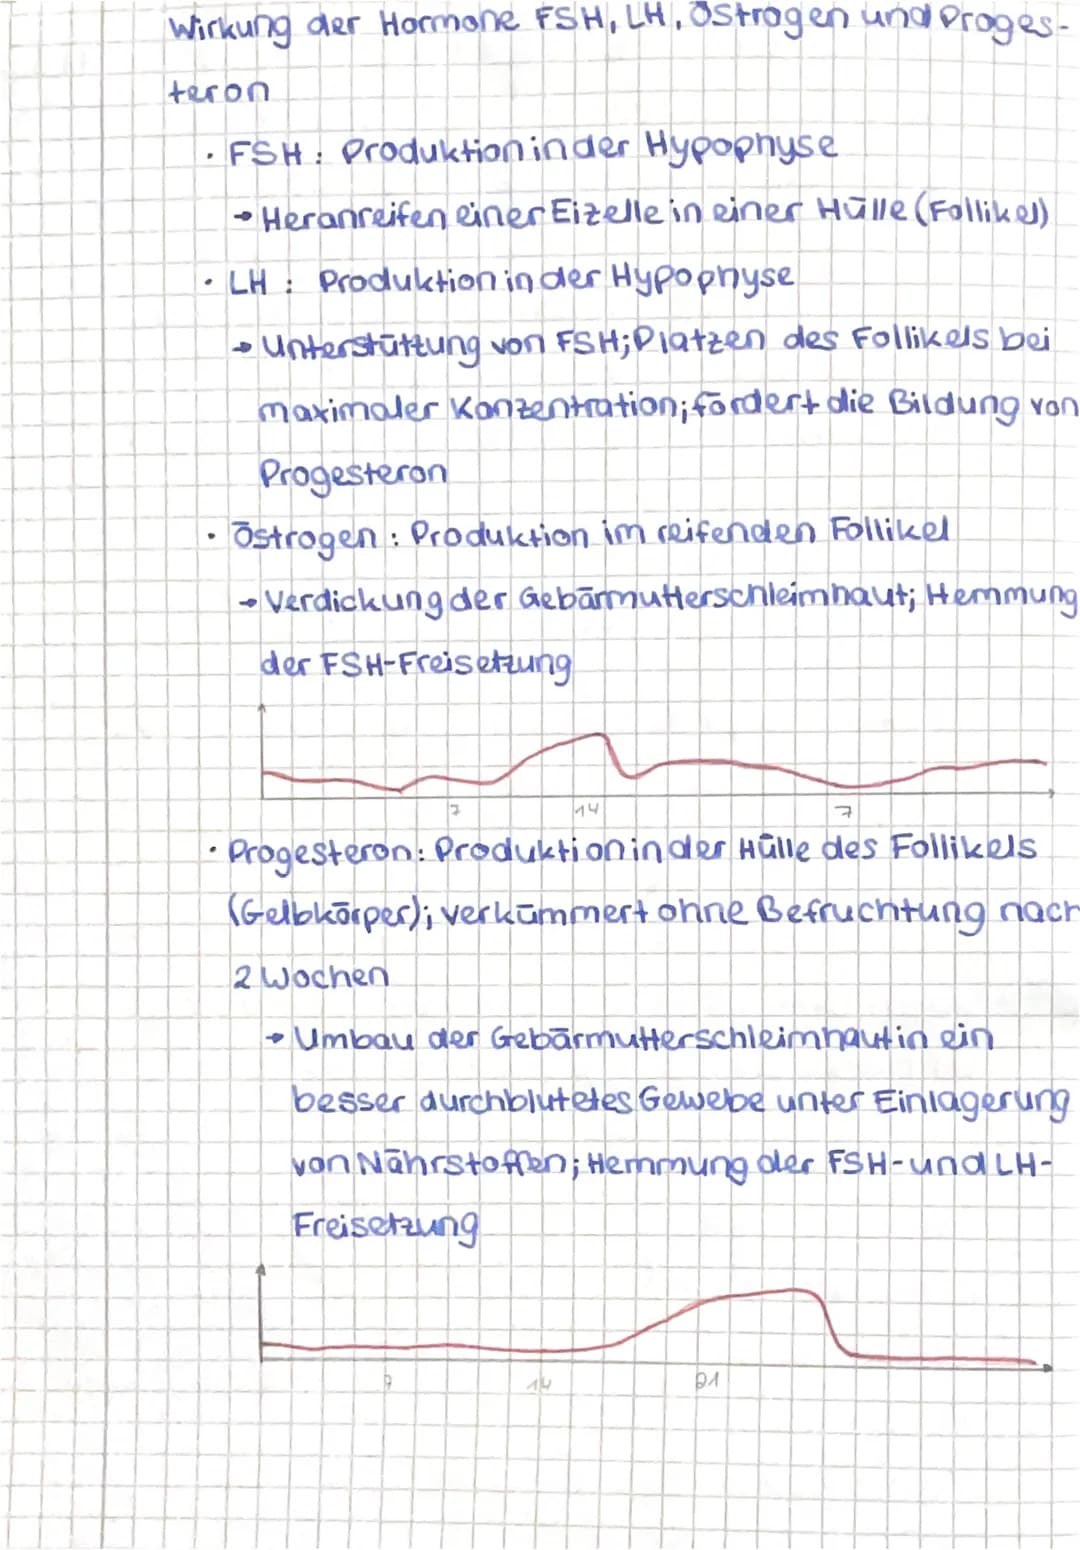 Wirkung der Hormone FSH, LH, Östrogen und Proges-
teron
· FSH: Produktion in der Hypophyse
→ Heranreifen einer Eizelle in einer Hülle (Follikel)
· LH: Produktion in der Hypophyse
→ Unterstützung von FSH; Platzen des Follikels bei
maximaler Konzentration; fördert die Bildung von
Progesteron
· Östrogen: Produktion im reifenden Follikel
→ Verdickung der Gebärmutterschleimhaut; Hemmung
der FSH-Freisetzung
7 14 7
· Progesteron: Produktion in der Hülle des Follikels
(Gelbkörper); verkümmert ohne Befruchtung nach
2 Wochen
→ Umbau der Gebärmutterschleimhaut in ein
besser durchblutetes Gewebe unter Einlagerung
von Nährstoffen; Hemmung der FSH- und LH-
Freisetzung
7 14 21